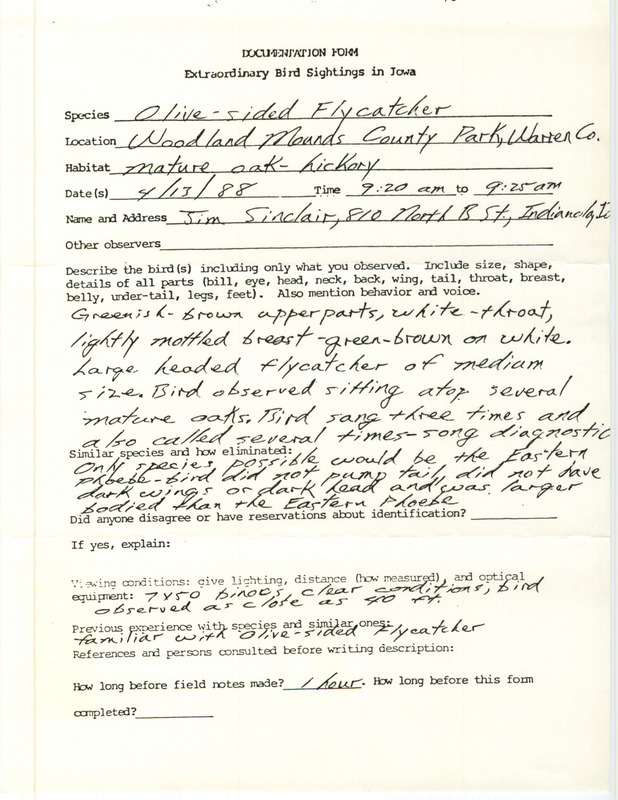 DOCUMENTATION FORM
Extraordinary Bird Sightings in Iowa
Species Olive-sided Flycatcher
Location Woodland Mounds County Park, Warren Co.
Habitat mature oak-hickory
Date(s) 4/13/88 Time 9:20 am to 9:25 am
Name and Address Jim Sinclair, 810 North B St., Indianola, Io
Other observers
Describe the bird(s) including only what you observed. Include size, shape,
details of all parts (bill, eye, head, neck, back, wing, tail, throat, breast,
belly, under-tail, legs, feet). Also mention behavior and voice.
Greenish-brown upperparts, white-throat,
lightly mottled breast-green-brown on white.
Large headed flycatcher of medium
size. Bird observed sitting atop several
mature oaks. Bird sang three times and
also called several times-song diagnostic
Similar species and how eliminated:
Only species possible would be the Eastern
Phoebe-bird did not pump tail, did not have
dark wings or dark head and was larger
bodied than the Eastern Phoebe
Did anyone disagree or have reservations about identification?
If yes, explain:
Viewing conditions: give lighting, distance (how measured), and optical
equipment: 7x50 binocs, clear conditions, bird
observed as close as 40 ft.
Previous experience with species and similar ones:
familiar with Olive-sided Flycatcher
References and persons consulted before writing description:
How long before field notes made? 1 hour. How long before this form
completed?